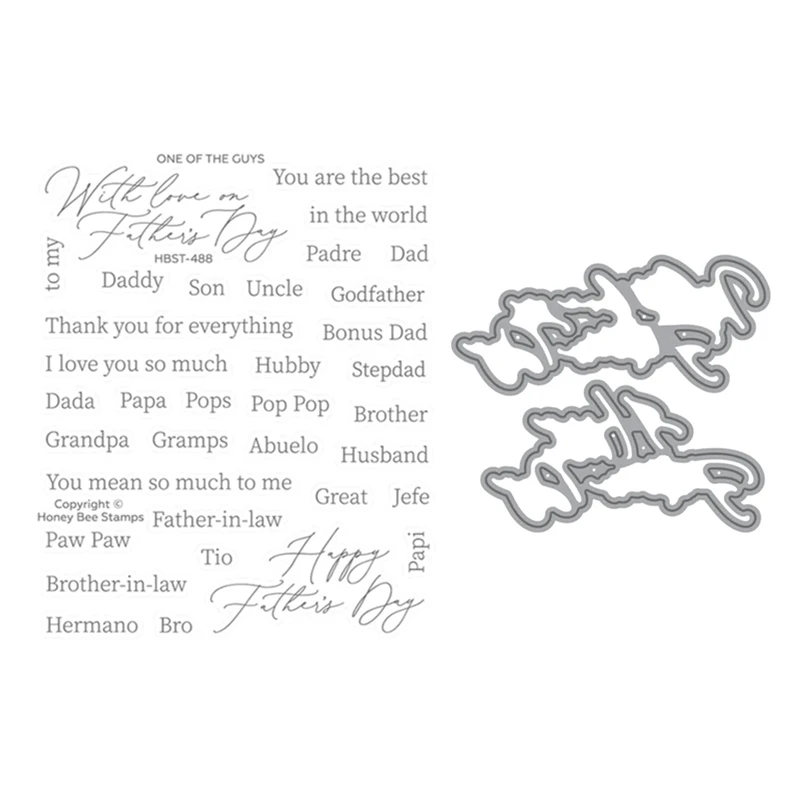 ONE OF THE GUYS
With love on
Father's Day
HBST-488
to my
You are the best
in the world
Padre Dad
Daddy Son Uncle Godfather
Thank you for everything Bonus Dad
I love you so much Hubby Stepdad
Dada Papa Pops Pop Pop Brother
Grandpa Gramps Abuelo Husband
You mean so much to me
Great Jefe
Copyright ©
Honey Bee Stamps
Father-in-law
Paw Paw
Tio
Happy
Father's Day
Papi
Brother-in-law
Hermano Bro